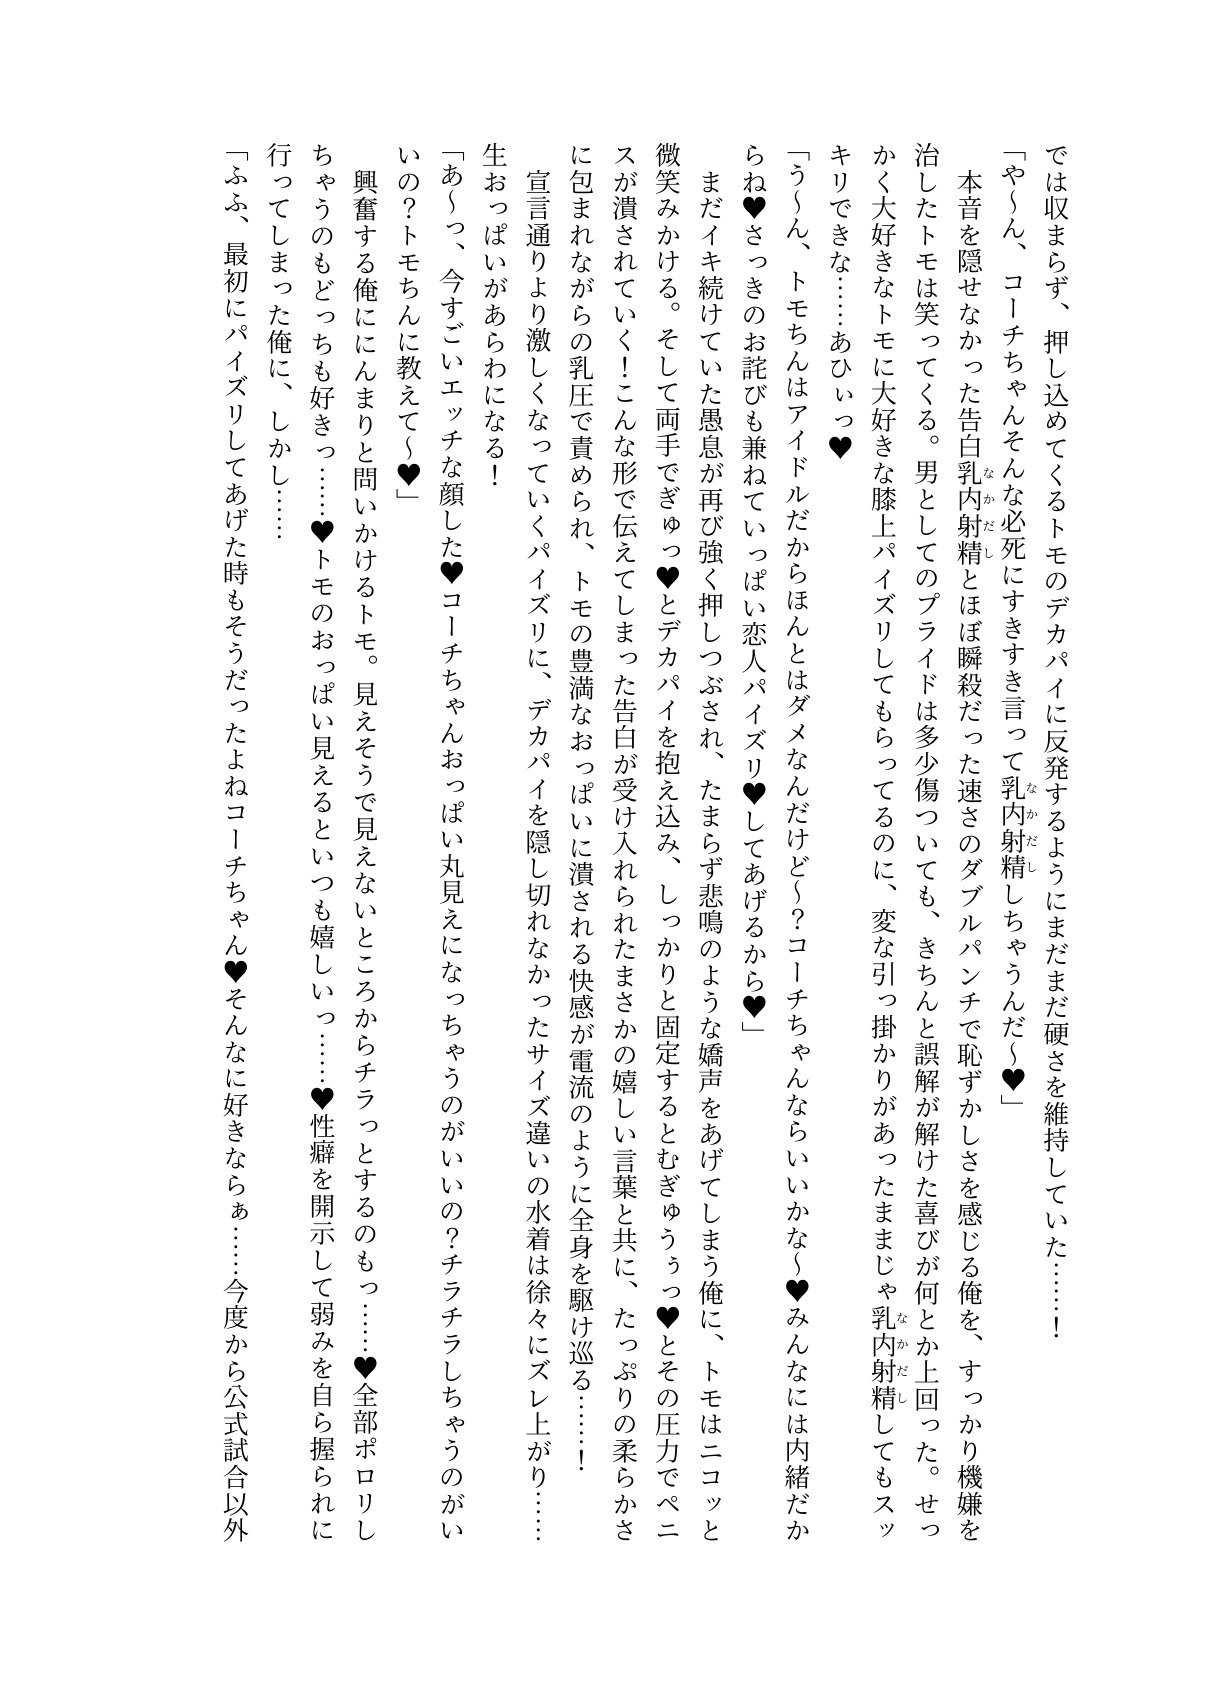 では収まらず、押し込めてくるトモのデカパイに反発するようにまだまだ硬さを維持していた……！
「や～ん、コーチちゃんそんな必死にすきすき言って乳内射精しちゃうんだ～♥」
　本音を隠せなかった告白乳内射精とほぼ瞬殺だった速さのダブルパンチで恥ずかしさを感じる俺を、すっかり機嫌を
治したトモは笑ってくる。男としてのプライドは多少傷ついても、きちんと誤解が解けた喜びが何とか上回った。せっ
かく大好きなトモに大好きな膝上パイズリしてもらってるのに、変な引っ掛かりがあったままじゃ乳内射精してもスッ
キリできな……あひぃっ♥
「う～ん、トモちんはアイドルだからほんとはダメなんだけど～？コーチちゃんならいいかな～♥みんなには内緒だか
らね♥さっきのお詫びも兼ねていっぱい恋人パイズリ♥してあげるから♥」
　まだイキ続けていた愚息が再び強く押しつぶされ、たまらず悲鳴のような嬌声をあげてしまう俺に、トモはニコッと
微笑みかける。そして両手でぎゅっ♥とデカパイを抱え込み、しっかりと固定するとむぎゅうぅっ♥とその圧力でペニ
スが潰されていく！こんな形で伝えてしまった告白が受け入れられたまさかの嬉しい言葉と共に、たっぷりの柔らかさ
に包まれながらの乳圧で責められ、トモの豊満なおっぱいに潰される快感が電流のように全身を駆け巡る……！
　宣言通りより激しくなっていくパイズリに、デカパイを隠し切れなかったサイズ違いの水着は徐々にズレ上がり……
生おっぱいがあらわになる！
「あ～っ、今すごいエッチな顔した♥コーチちゃんおっぱい丸見えになっちゃうのがいいの？チラチラしちゃうのがい
いの？トモちんに教えて～♥」
　興奮する俺ににんまりと問いかけるトモ。見えそうで見えないところからチラっとするのもっ……♥全部ポロリし
ちゃうのもどっちも好きっ……♥トモのおっぱい見えるといつも嬉しいっ……♥性癖を開示して弱みを自ら握られに
行ってしまった俺に、しかし……
「ふふ、最初にパイズリしてあげた時もそうだったよねコーチちゃん♥そんなに好きならぁ……今度から公式試合以外